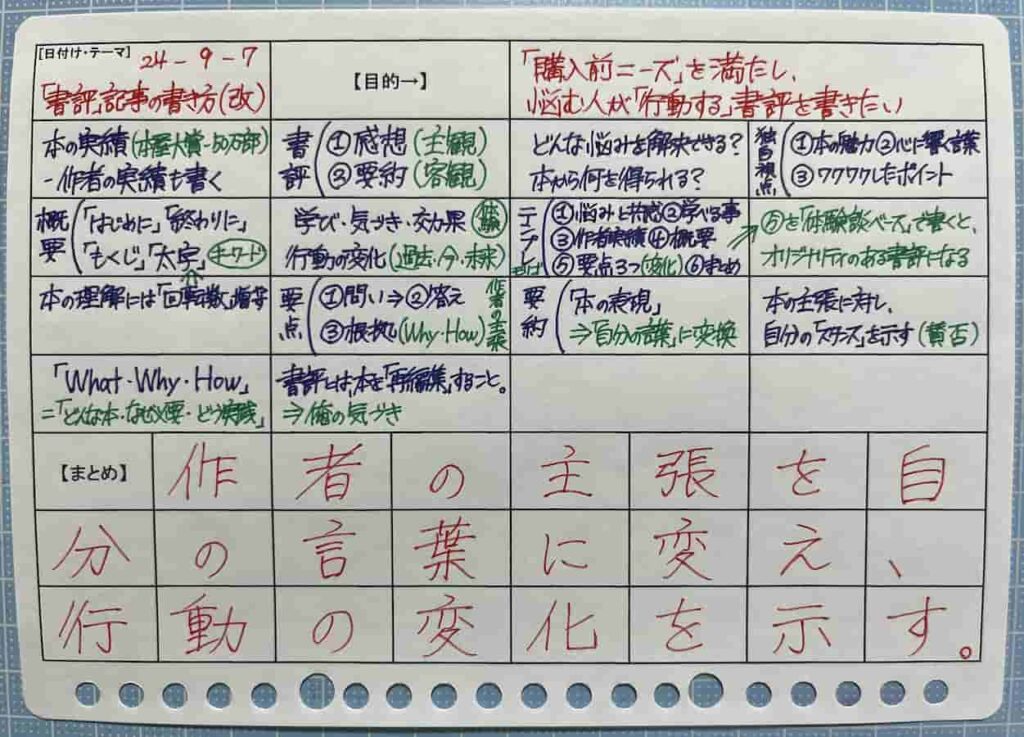 【日付け・テーマ】 24-9-7
「書評」記事の書き方(改)
【目的→】
「購入前ニーズ」を満たし、
悩む人が「行動する」書評を書きたい
本の実績(本屋大賞-50万部)
-作者の実績も書く
書評
①感想(主観)
②要約(客観)
どんな悩みを解決できる?
本から何を得られる?
独自視点
①本の魅力②心に響く言葉
③ワクワクしたポイント
概要
「はじめに」「終わりに」
「もくじ」「太字」キーワード
学び・気づき・効果
行動の変化(過去・今・未来)
テンプレ
①悩みと共感②学べる事
③作者実績④概要
⑤要点3つ(変化)⑥まとめ
⑤を「体験談ベース」で書くと、
オリジナリティのある書評になる
本の理解には「回転数」
要点
①問い⇒②答え
③根拠(Why・How)
作者の主張
要約
「本の表現」
⇒「自分の言葉」に変換
本の主張に対し、
自分の「スタンス」を示す(賛否)
「What・Why・How」
=「どんな本・なぜ必要・どう実践」
書評とは、本を「再編集」すること。
⇒俺の気づき
【まとめ】作者の主張を自
分の言葉に変え、
行動の変化を示す。